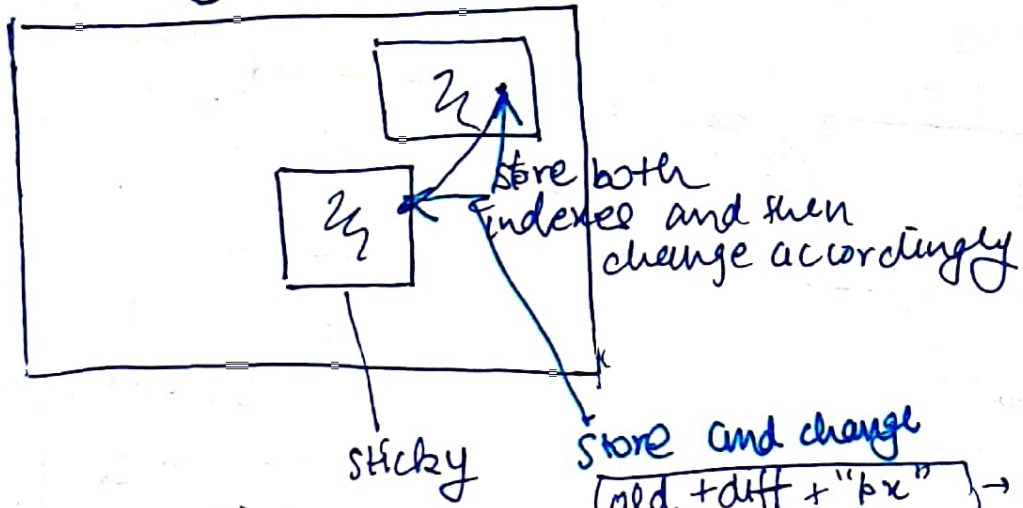 store both
indexes and then
change accordingly
sticky
store and change
old + diff + "px" →